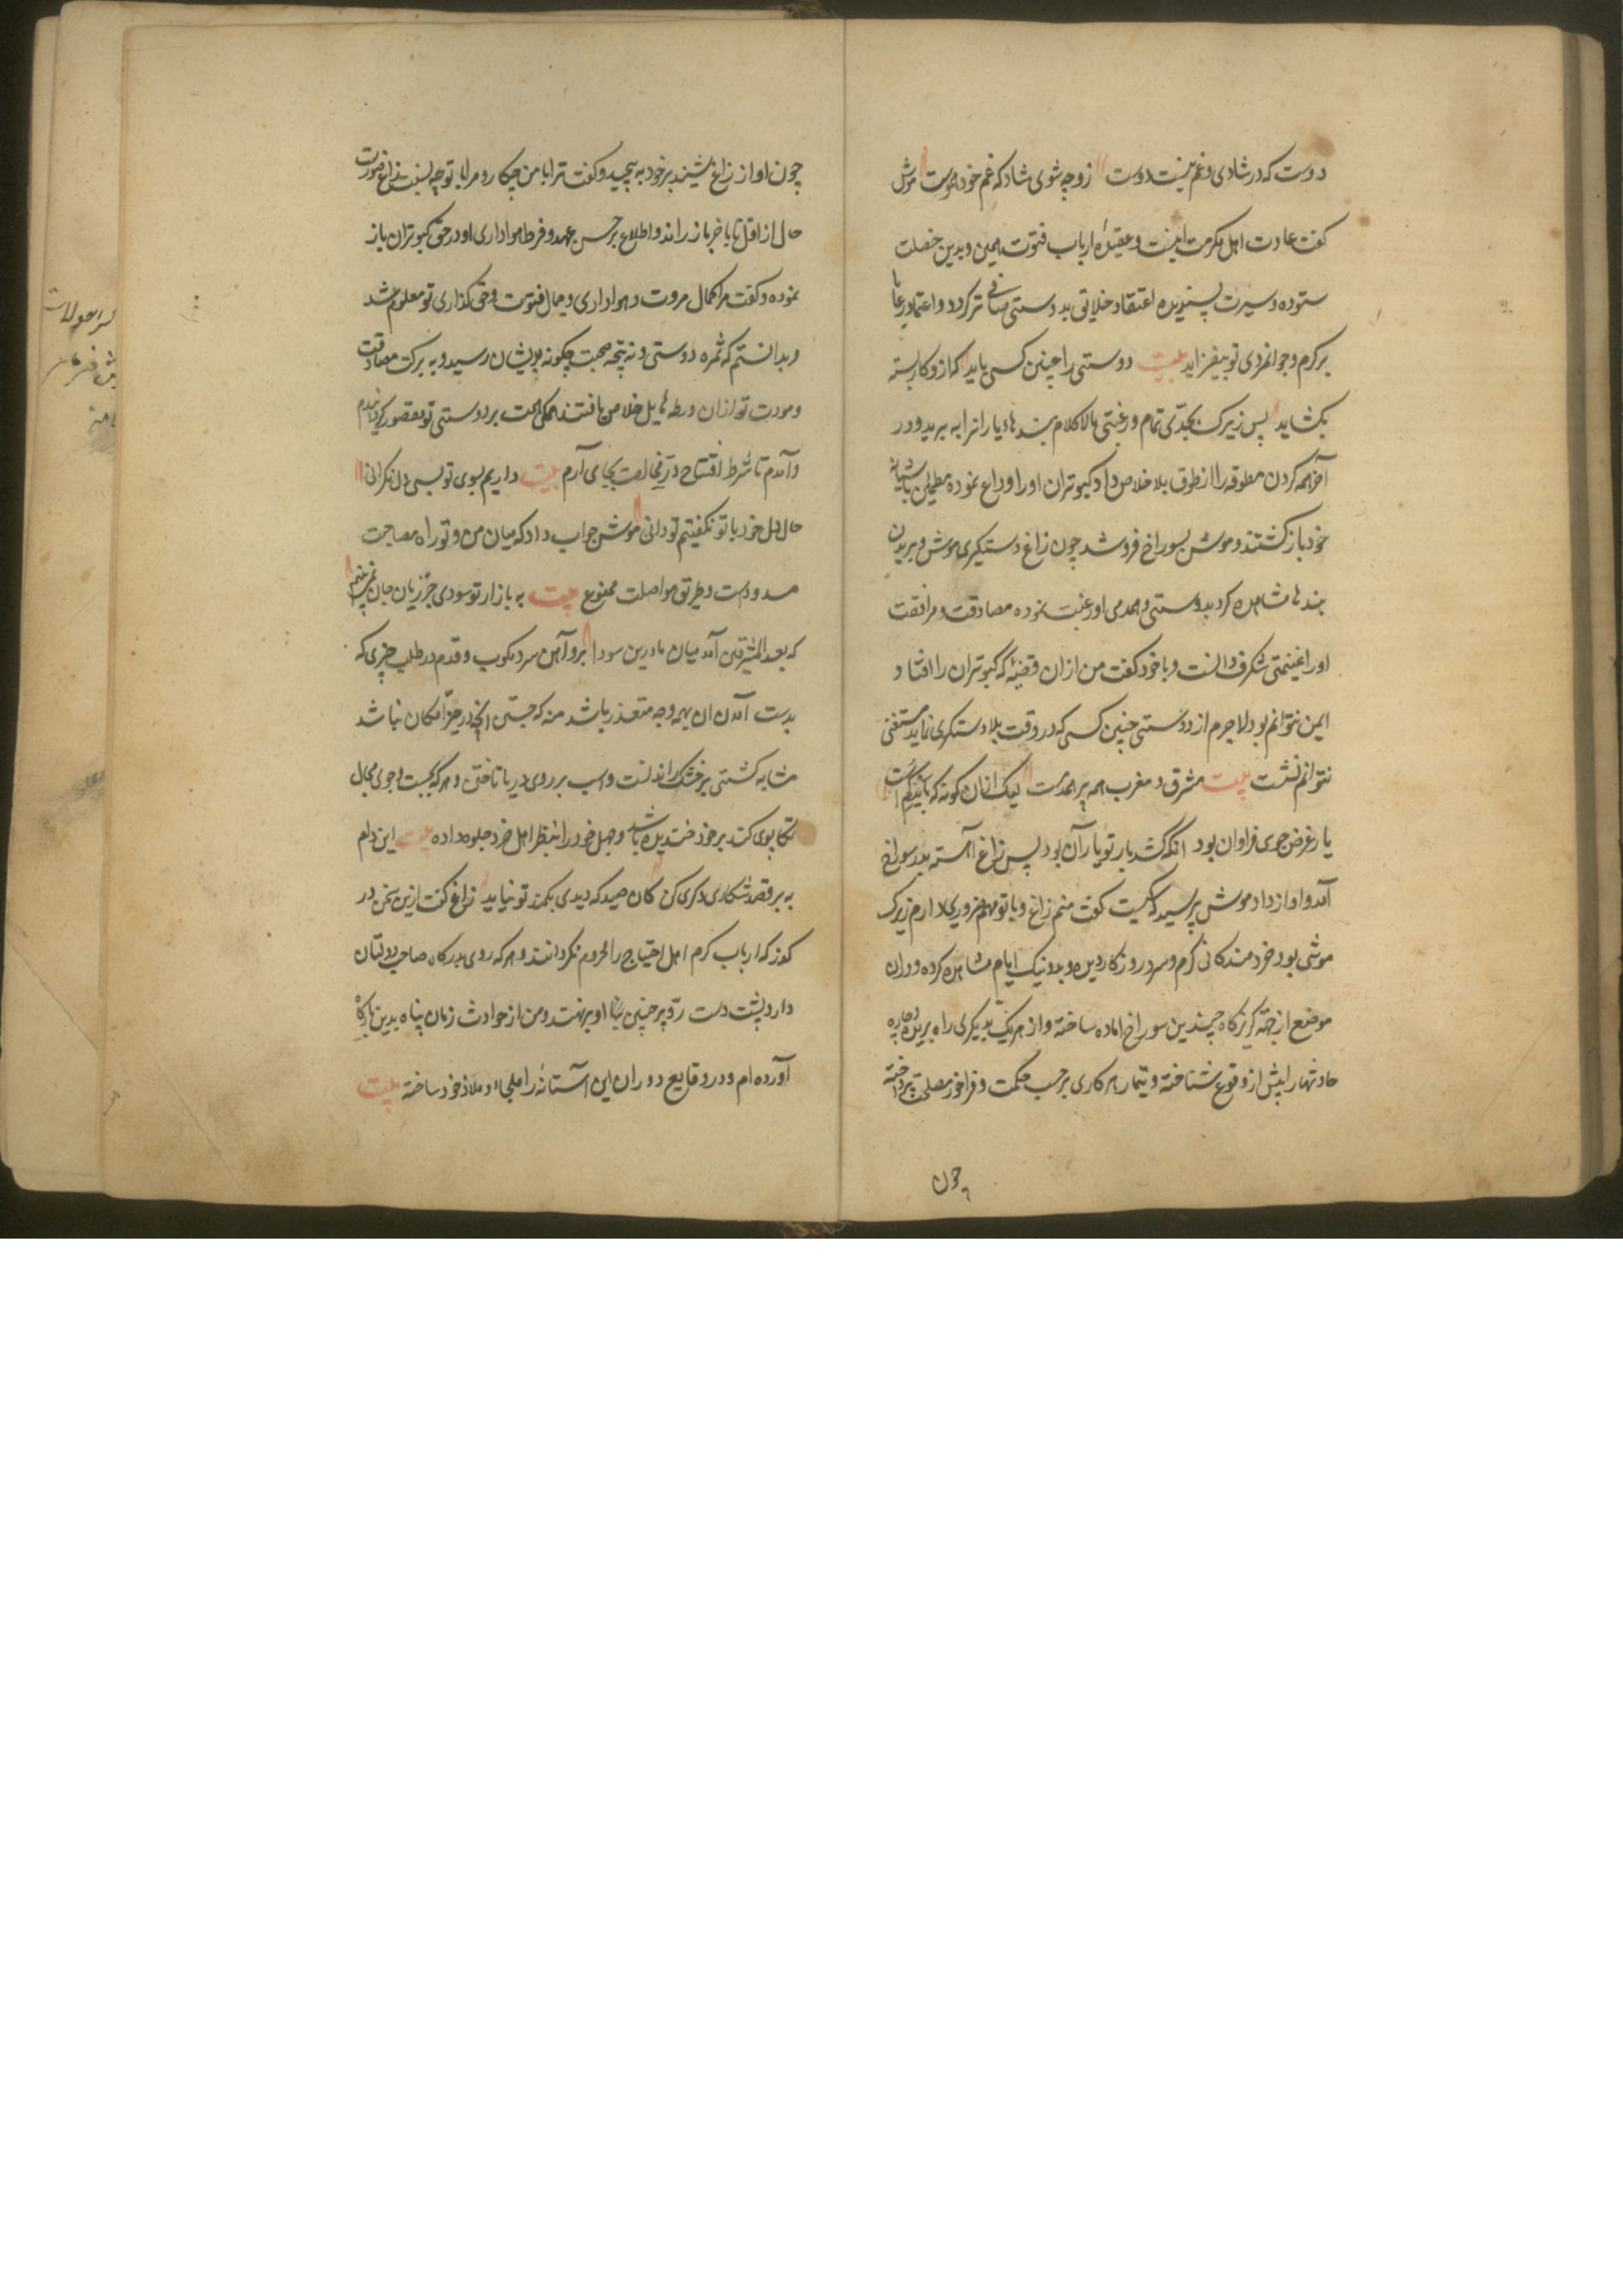 دوست که در شادی و غم نیست دوست زو چه شوی شاد که غم خود هموست موش
کفت عادت اهل مکرمت اینست و عقیدهٔ ارباب فتوت همین و بدین خصلت
ستوده و سیرت پسندیده اعتقاد خلایق بدوستی صافی تر کردد و اعتماد رعایا
بر کرم و جوانمردی تو بیفزاید بیت دوستی را چنین کسی باید کز کار بسته
بکشاید پس زیرک بجدّی تمام و رغبتی مالاکلام بندهای یارانرا به برید و در
آخر همه کردن مطوقه را از طوق بلا خلاص داد کبوتران او را وداع نموده مطمئن بآشیانه
خود باز کشتند و موش بسوراخ فرو شد چون زاغ دستکیری موش و بریدن
بندها مشاهده کرد بدوستی و همدمی او رغبت نموده مصادقت و مرافقت
او را غنیمتی شکرف دانست و با خود کفت من از ان قضیّه که کبوتران را افتاد
ایمن نتوانم بود لاجرم از دوستی چنین کسی که در وقت بلا دستکیری نماید مستغنی
نتوانم نشست بیت مشرق و مغرب همه پر همدست لیک ازان کونه که باید کم است
یار غرض جوی فراوان بود آنکه کشد بار تو یار آن بود پس زاغ آهسته بدر سوراخ
آمد و اواز داد موش پرسید که کیست کفت منم زاغ و با تو مهم ضروری دارم زیرک
موشی بود خردمند کانی کرم و سرد روزکار دیده و بد و نیک ایام مشاهده کرده و دران
موضع از جهة کریزکاه چندین سوراخ اماده ساخته و از هر یک بدیکری راه بریده و چاره
حادثها را پیش از وقوع شناخته و تیمار هر کاری بر حسب حکمت و فراخور مصلحت پرداخته
چون
چون اواز زاغ شنید بر خود به پیچید و کفت ترا با من چکار و مرا با تو چه نسبت زاغ صورت
حال از اوّل تا باخر باز راند و اطلاع بر حسن عهد و فرط هواداری او در حق کبوتران باز
نموده و کفت مرا کمال مروت و هواداری و جمال فتوت و حق کذاری تو معلوم شد
و بدانستم که ثمره دوستی و نتیجه صحبت چکونه بدیشان رسید و به برکت مصادقت
و مودت تو ازان ورطه هایل خلاص یافتند همکی همت بر دوستی تو مقصور کردانیدم
و آمدم تا شرط افتتاح در مخالصت بجای آرم بیت داریم بسوی تو بسی دل نکرانی
حال دل خود با تو نکفتیم تو دانی موش جواب داد که میان من و تو راه مصاحبت
مسدودست و طریق مواصلت ممنوع بیت به بازار تو سودی جز زیان جان نمی بینم
که بعد المشرقین آمد میان ما درین سودا برو آهن سرد مکوب و قدم در طلب چیزی که
بدست آمدن ان بهمه وجه متعذر باشد منه که جستن آنچه در حیّز امکان نباشد
مشابه کشتی بر خشک راندنست و اسب بر روی دریا تاختن و هر که بجست و جوی محال
تکاپوی کند بر خود خندیده باشد و جهل خود را بنظر اهل خرد جلوه داده بیت این دام
به بر قصد شکاری دکری کن کان صید که دیدی بکمند تو نیاید زاغ کفت ازین سخن در
کذر که ارباب کرم اهل احتیاج را محروم نکردانند و هر که روی بدرکاه صاحب دولتان
دارد پشت دست ردّ بر جبین تمنّا او ننهند و من از حوادث زمان پناه بدین درکاه
آورده ام و در وقایع دوران این آستانه را ملجاء و ملاذ خود ساخته بیت